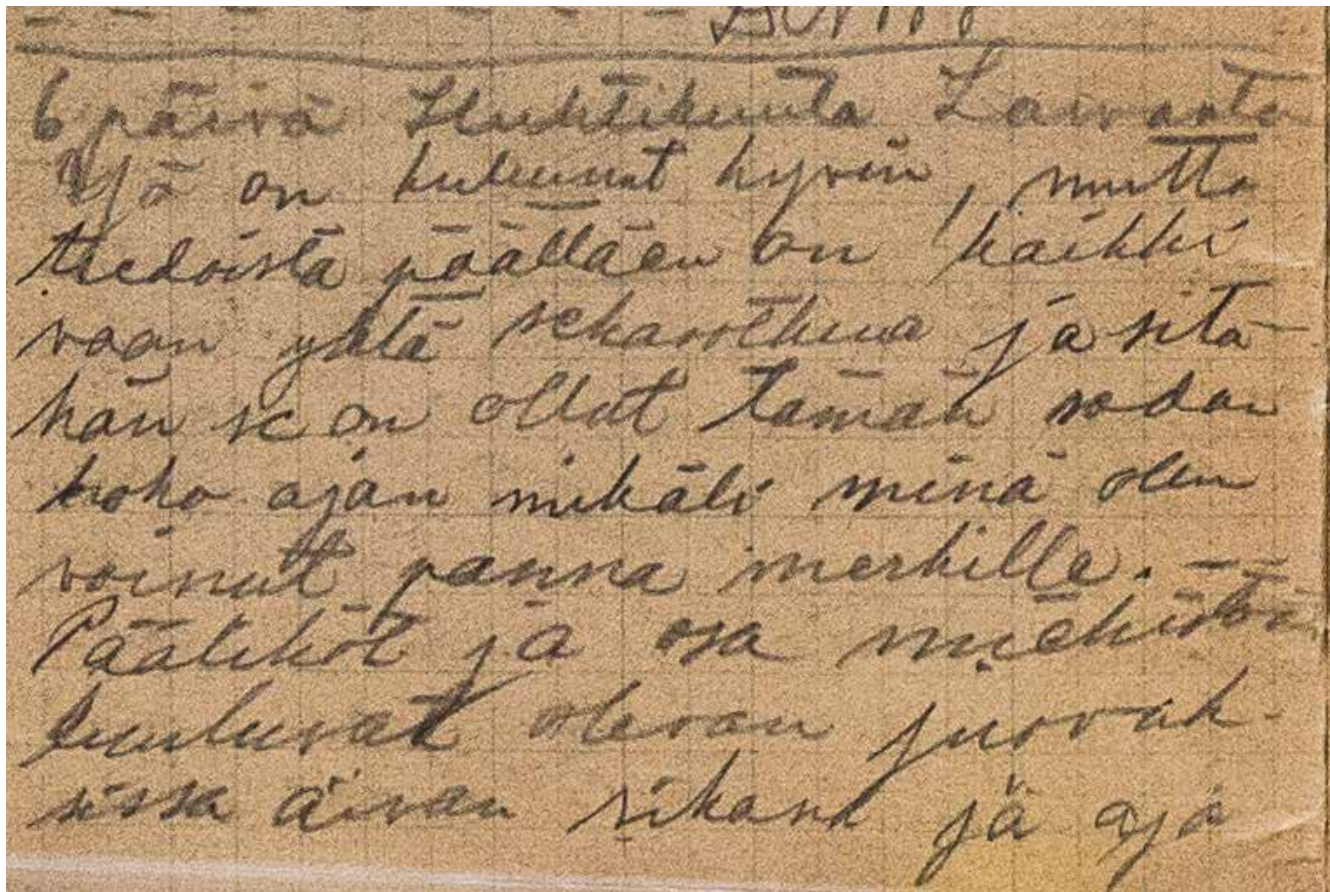 6 päivä Huhtikuuta Lawaata
Yö on kulunut hyvin, mutta
tiedoista päättäen on kaikki
vaan yhtä sekasotkua ja sitä-
hän se on ollut tämän sodan
koko ajan mikäli minä olen
voinut panna merkille. - -
Päälliköt ja osa miehistöä
kuuluvat olevan juovuk-
sissa aivan sikana ja aja